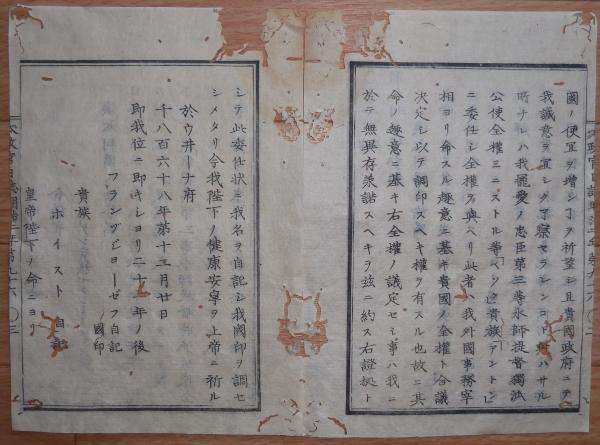 國ノ便宜ヲ増シ了ヲ祈望シ且貴國政府ニテ
我誠意ヲ宜シク了察セラレンコト疑ハサル
時ナレハ我寵愛ノ忠臣第三等水師提督獨派
公使全權ミニストル等ペツ貴族アントン
ニ委任シ全權ヲ與ヘリ此者ハ我外國事務宰
相ヨリ命スル趣意ニ基キ貴國ノ全權ト合議
決定シ以テ調印スヘキ權ヲ有スル也故ニ其
命ノ趣意ニ基キ右全權ノ議定セシ事ハ我ニ
於テ無異存承諾スヘキヲ玆ニ約ス右證據ト
シテ此委任状ニ我名ヲ自記シ我國印ヲ調セ
シメタリ今我陛下ノ健康安寧ヲ上帝ニ祈ル
於ウ井ーナ府
千八百六十八年第十三月廿日
即我位ニ即キシヨリ二十一年ノ後
フランツヒヨーゼフ自記
國印
貴族
ホイスト自記
皇帝陛下ノ命ニヨリ